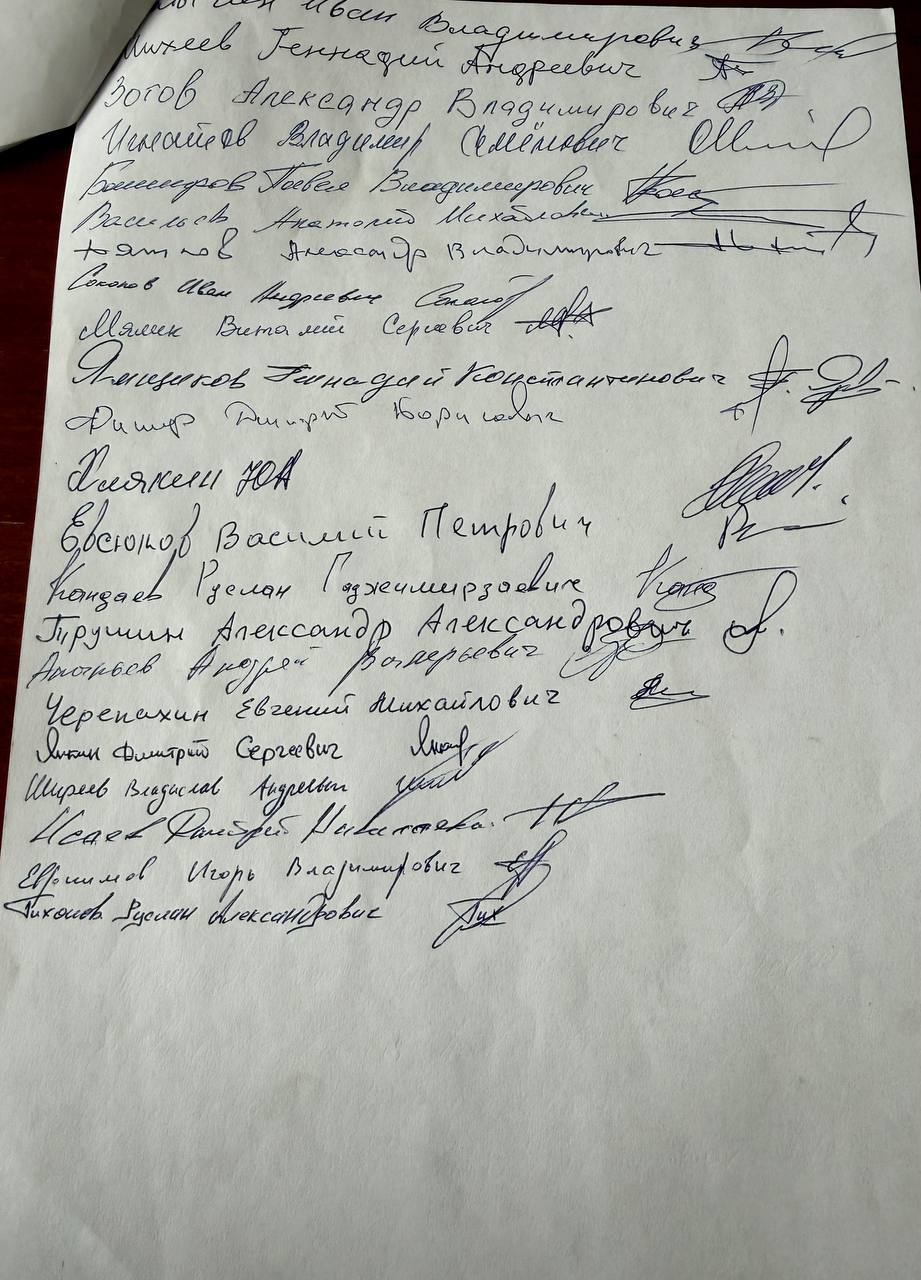 Иван Владимирович
Михеев Геннадий Андреевич
Зотов Александр Владимирович
Игнатов Владимир Семёнович
Башкиров Павел Владимирович
Васильев Анатолий Михайлович
Александр Владимирович
Соколов Иван Андреевич
Мялик Виталий Сергевич
Ямщиков Генадий Константинович
Дмитрий Борисович
Хлякин ЮА
Евсюков Василий Петрович
Кандаев Руслан Гаджимирзаевич
Трушин Александр Александрович
Андрей Валерьевич
Черепахин Евгений Михайлович
Янкин Дмитрий Сергеевич
Ширеев Владислав Андреевич
Исаев Дмитрий
Ефимов Игорь Владимирович
Тихонов Руслан Александрович